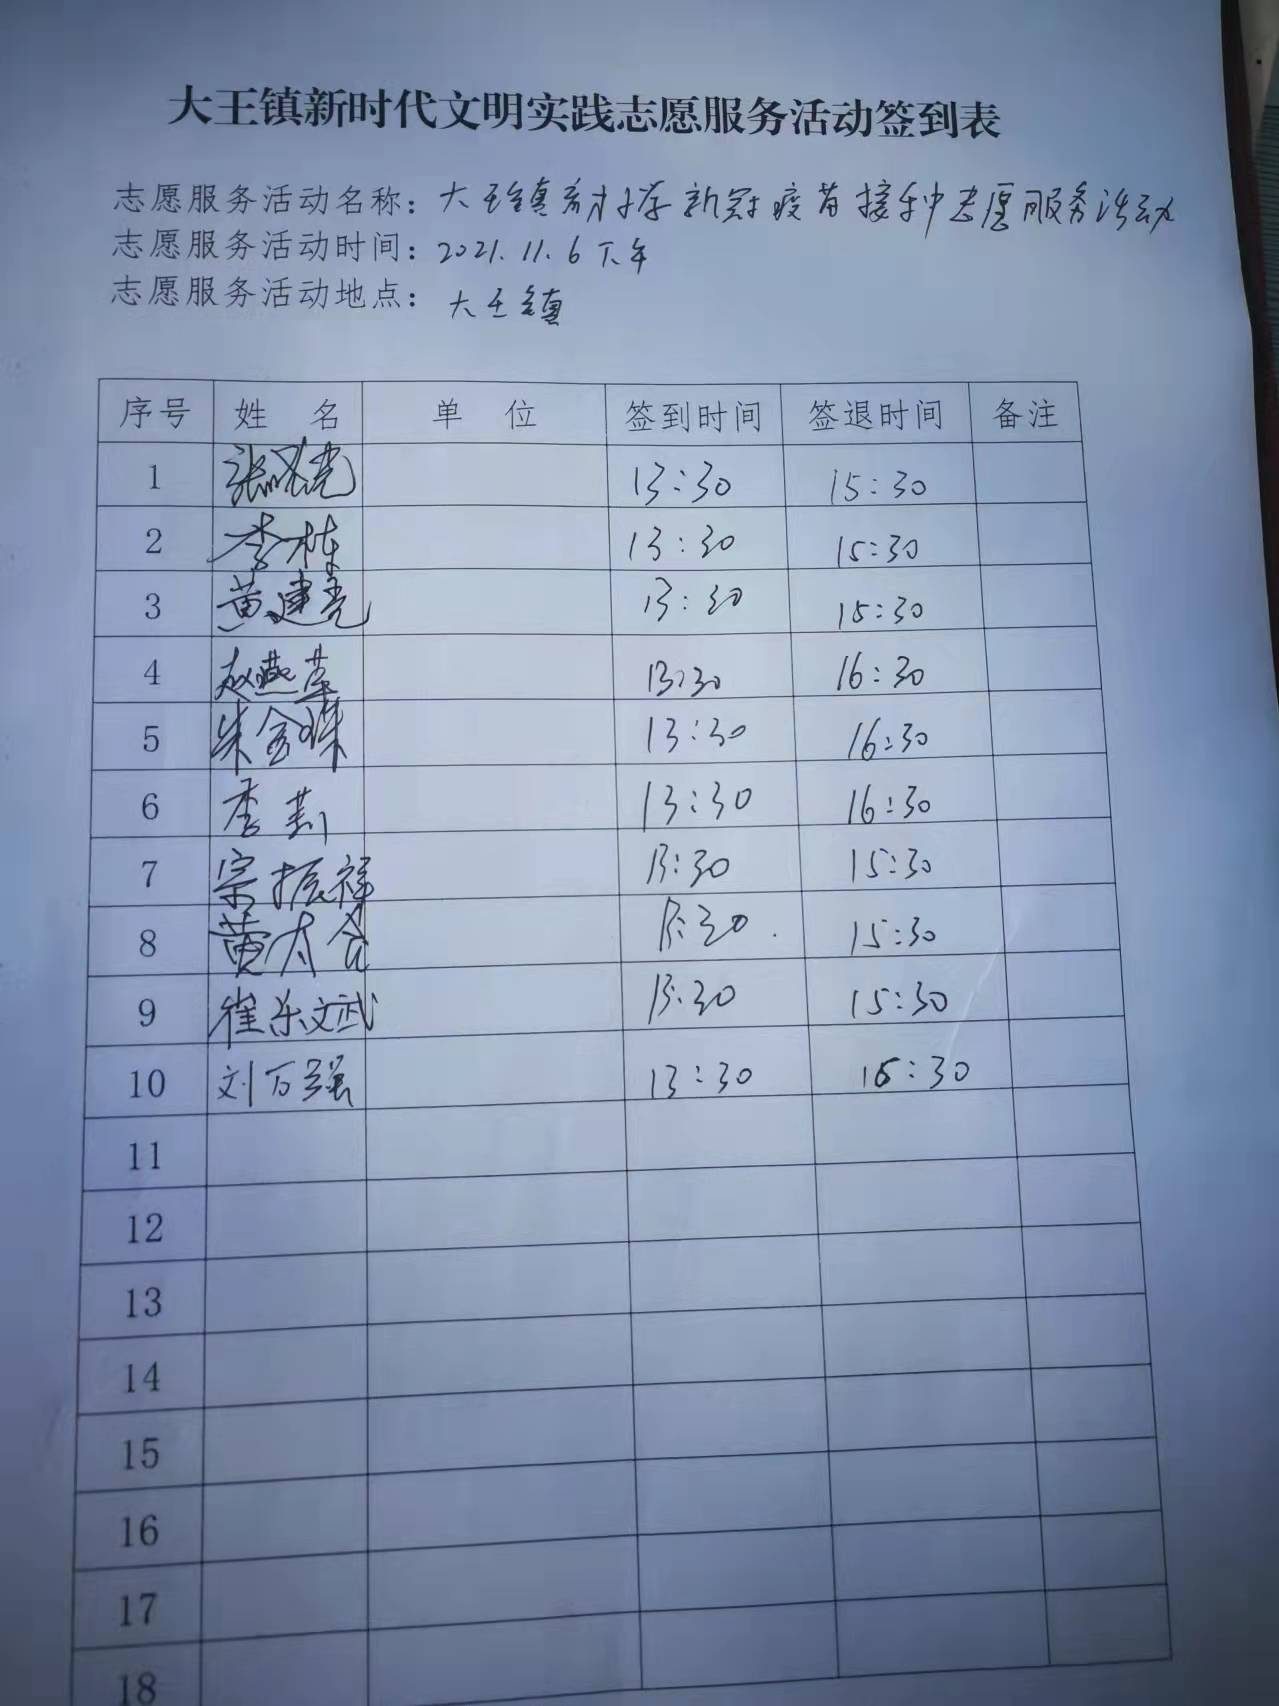 大王镇新时代文明实践志愿服务活动签到表
志愿服务活动名称：大王镇 新冠疫苗接种志愿服务活动
志愿服务活动时间：2021.11.6下午
志愿服务活动地点：大王镇
序号 姓 名 单 位 签到时间 签退时间 备注
1 张 亮 13:30 15:30
2 李栋 13:30 15:30
3 黄建亮 13:30 15:30
4 赵燕苹 13:30 16:30
5 朱金珠 13:30 16:30
6 李莉 13:30 16:30
7 宗振祥 13:30 15:30
8 黄太合 13:30 15:30
9 崔乐文武 13:30 15:30
10 刘万强 13:30 15:30
11
12
13
14
15
16
17
18